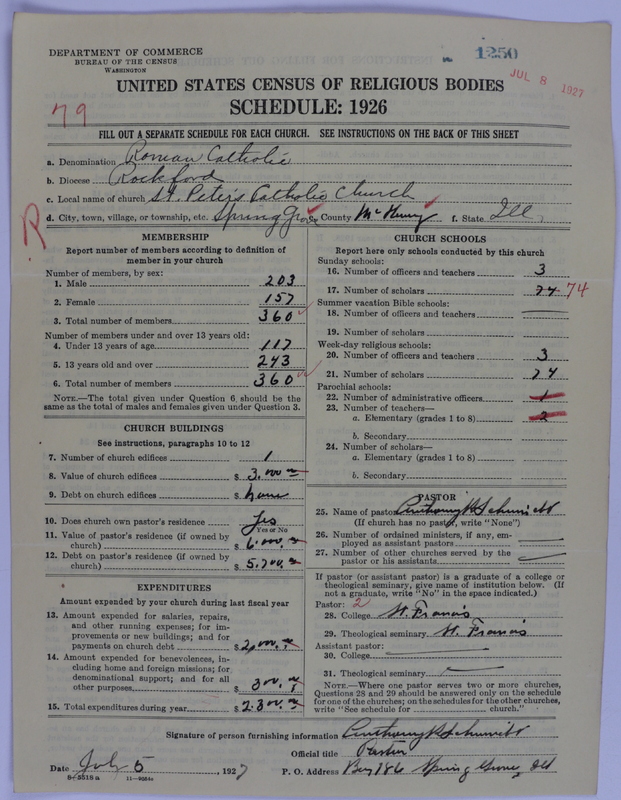 DEPARTMENT OF COMMERCE
BUREAU OF THE CENSUS
WASHINGTON
1250
JUL 8 1927
UNITED STATES CENSUS OF RELIGIOUS BODIES
SCHEDULE: 1926
79
FILL OUT A SEPARATE SCHEDULE FOR EACH CHURCH. SEE INSTRUCTIONS ON THE BACK OF THIS SHEET
a. Denomination Roman Catholic
b. Diocese Rockford
c. Local name of church St. Peters Catholic Church
d. City, town, village, or township, etc. Spring Grove County McHenry f. State Ill.
R
MEMBERSHIP
Report number of members according to definition of
member in your church
Number of members, by sex:
1. Male 203
2. Female 157
3. Total number of members 360
Number of members under and over 13 years old:
4. Under 13 years of age 117
5. 13 years old and over 243
6. Total number of members 360
NOTE.—The total given under Question 6 should be
same as the total of males and females given under Question 3.
CHURCH BUILDINGS
See instructions, paragraphs 10 to 12
7. Number of church edifices 1
8. Value of church edifices $ 3.000
9. Debt on church edifices $ none
10. Does church own pastor's residence Yes
Yes or No
11. Value of pastor's residence (if owned by
church) $ 6.000.
12. Debt on pastor's residence (if owned by
church) $ 5.700.
EXPENDITURES
Amount expended by your church during last fiscal year
13. Amount expended for salaries, repairs,
and other running expenses; for im-
provements or new buildings; and for
payments on church debt $ 2000.
14. Amount expended for benevolences, in-
cluding home and foreign missions; for
denominational support; and for all
other purposes $ 300.
15. Total expenditures during year $ 2.300.
CHURCH SCHOOLS
Report here only schools conducted by this church
Sunday schools:
16. Number of officers and teachers 3
17. Number of scholars 74 74
Summer vacation Bible schools:
18. Number of officers and teachers
19. Number of scholars
Week-day religious schools:
20. Number of officers and teachers 3
21. Number of scholars 74
Parochial schools:
22. Number of administrative officers 1
23. Number of teachers—
a. Elementary (grades 1 to 8) 2
b. Secondary
24. Number of scholars—
a. Elementary (grades 1 to 8)
b. Secondary
PASTOR
25. Name of pastor Anthony
(If church has no pastor, write "None")
26. Number of ordained ministers, if any, em-
ployed as assistant pastors
27. Number of other churches served by the
pastor or his assistants
If pastor (or assistant pastor) is a graduate of a college or
theological seminary, give name of institution below. (If
not a graduate, write "No" in the space indicated.)
Pastor: 2
28. College St. Francis
29. Theological seminary St. Francis
Assistant pastor:
30. College
31. Theological seminary
NOTE.—Where one pastor serves two or more churches,
Questions 28 and 29 should be answered only on the schedule
for one of the churches; on the schedules for the other churches,
write "See schedule for church."
Signature of person furnishing information Anthony
Official title Pastor
Date July 5, 1927 P. O. Address Box 186 Spring Grove Ill
8-5518a 11-9554